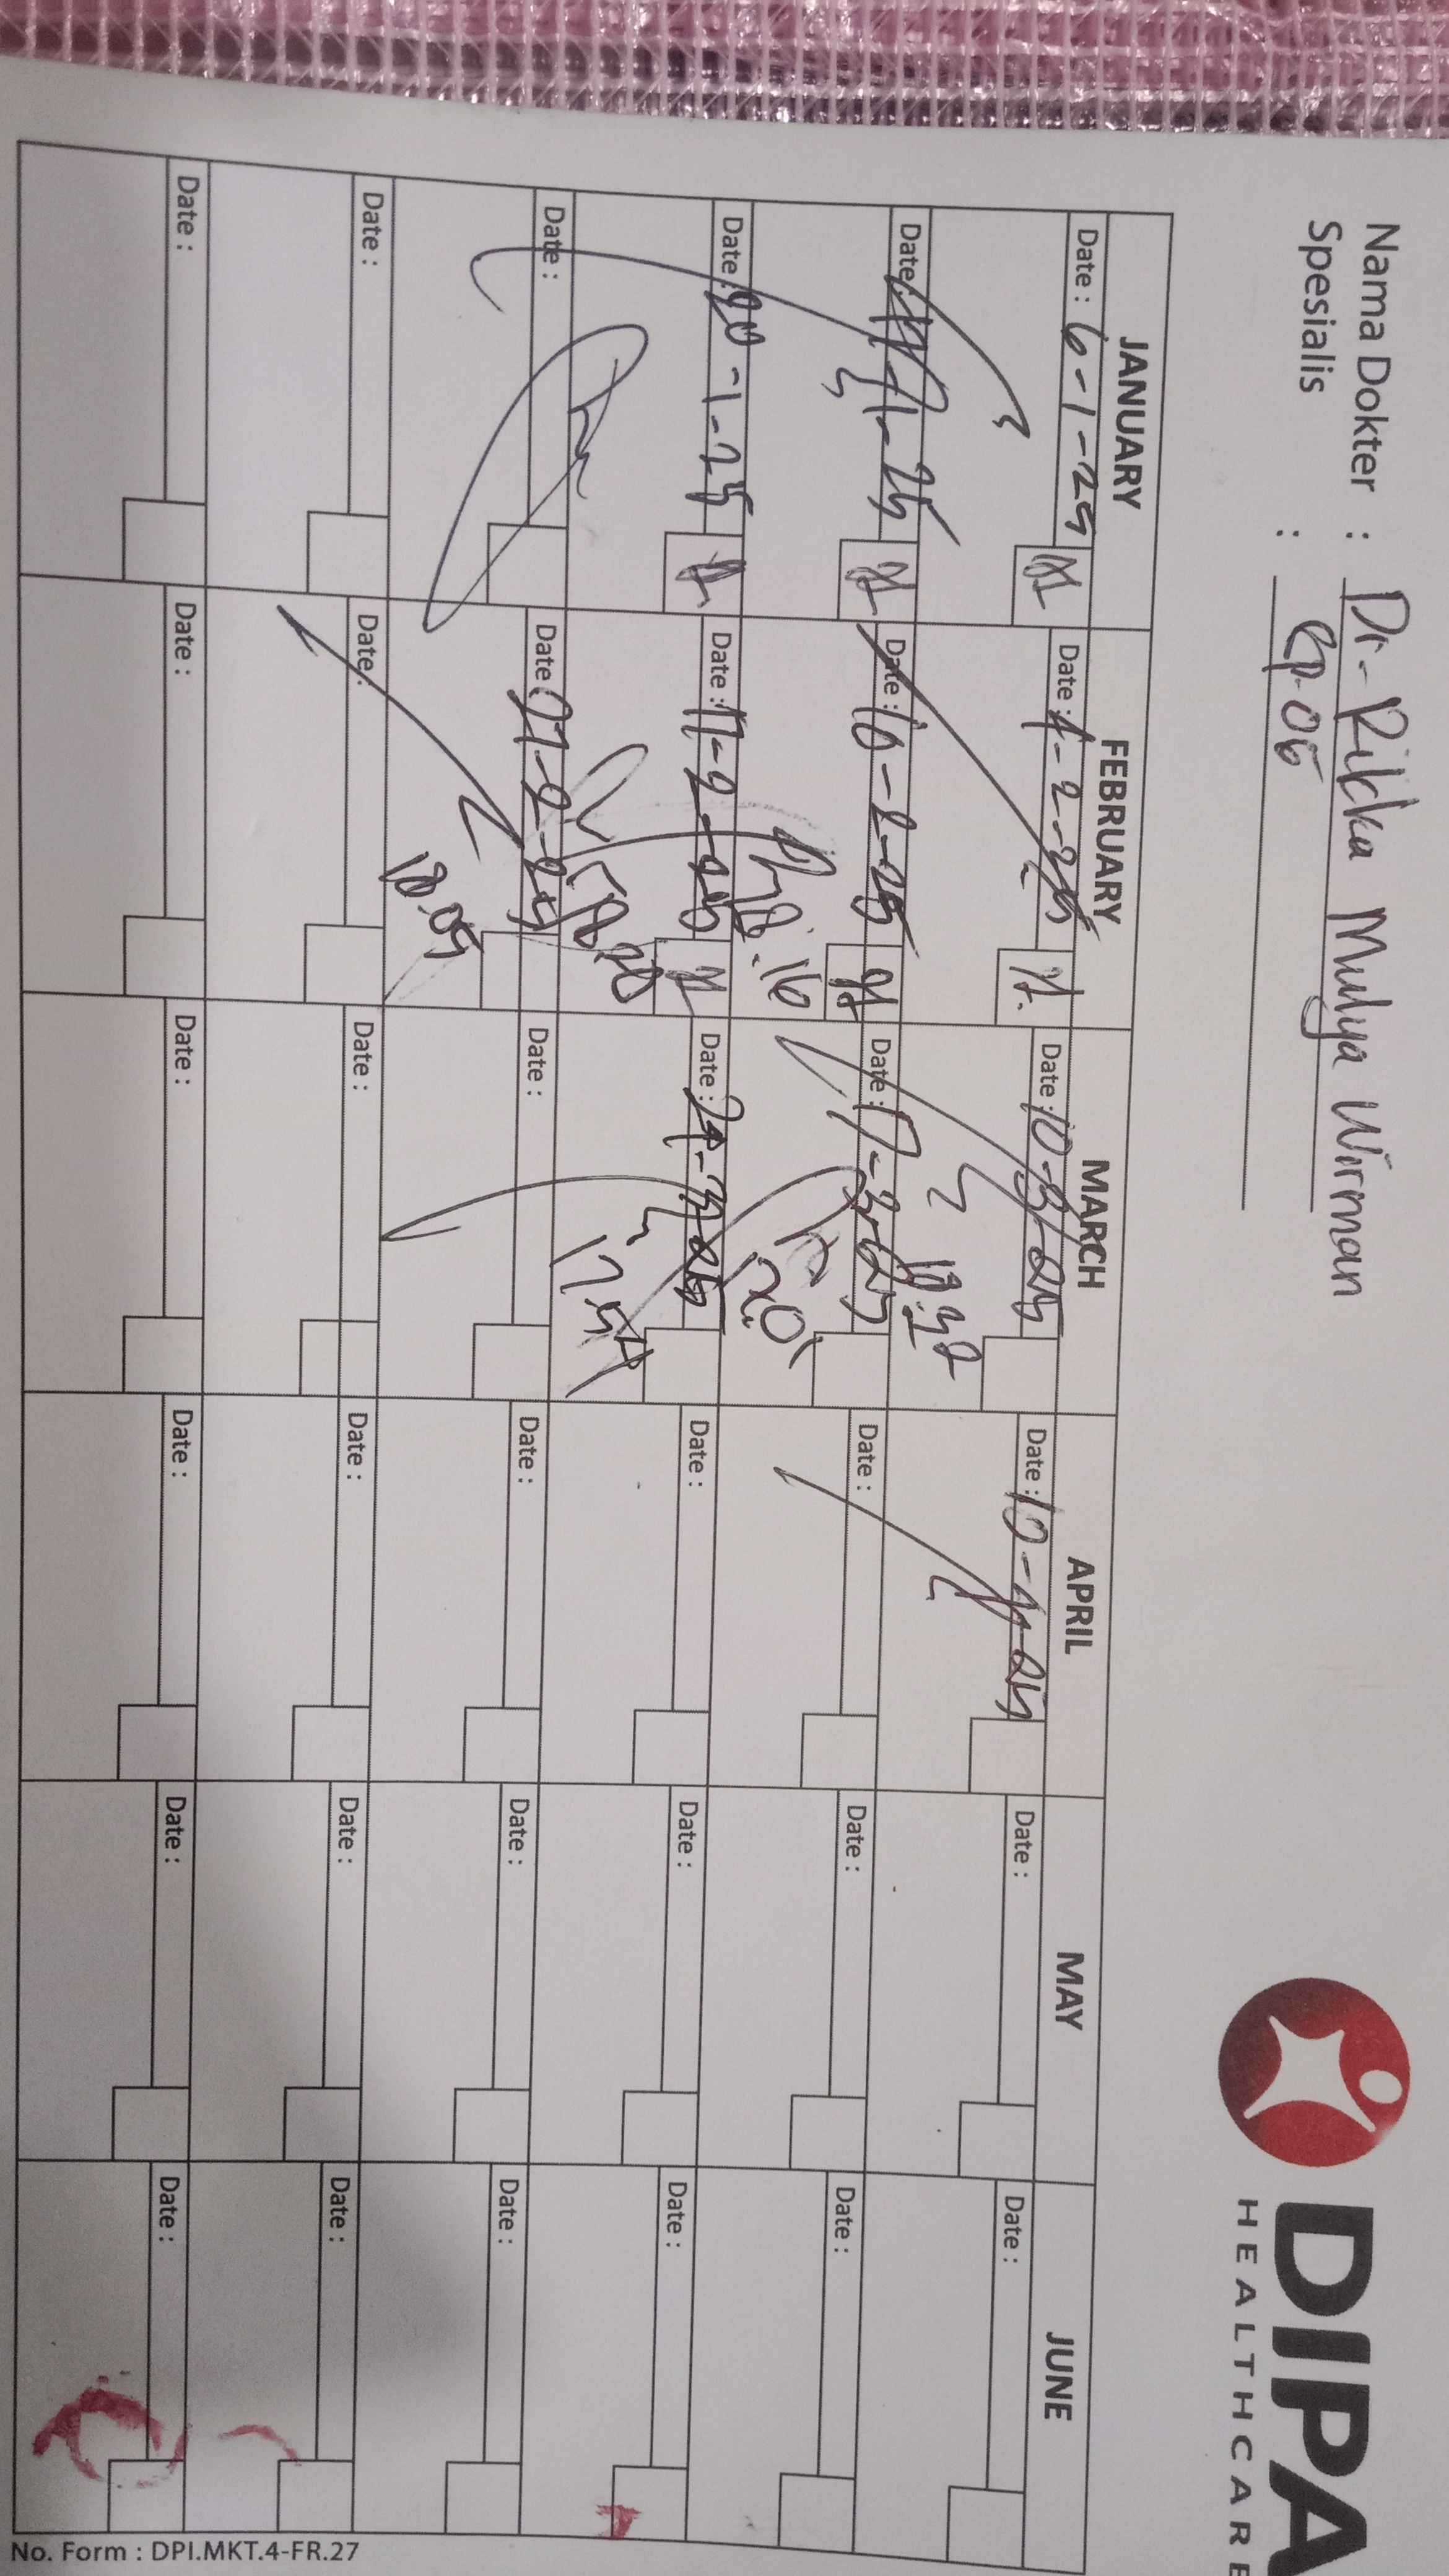 Nama Dokter : Dr. Rikka Mulya Wirman
Spesialis : SP.OG
DIPA
HEALTHCARE
JANUARY FEBRUARY MARCH APRIL MAY JUNE
Date : 6-1-25 Date : 4-2-25 Date : 10-3-25 Date : 10-4-25 Date : Date :
18.32
Date : -1-25 Date : 10-2-25 Date : 17-3-25 Date : Date : Date :
18.16
Date : 20-1-25 Date : 17-2-25 Date : 24-3-25 Date : Date : Date :
17.54
Date : Date : 27-2-25 Date : Date : Date : Date :
18.05
Date : Date : Date : Date : Date : Date :
Date : Date : Date : Date : Date : Date :
No. Form : DPI.MKT.4-FR.27